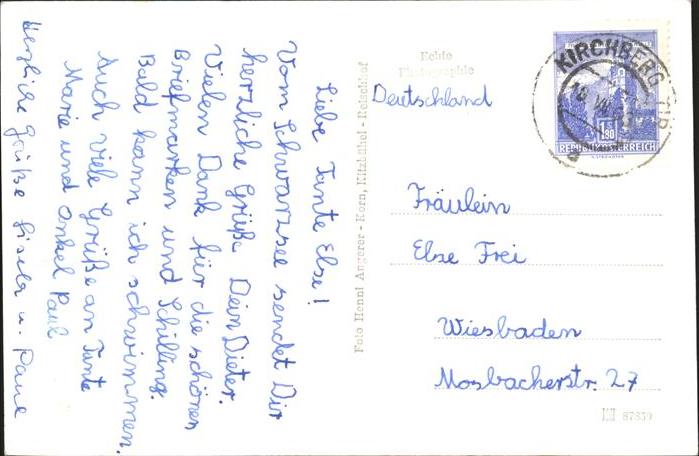 Liebe Tante Else!
Vom Schwarzsee sendet Dir
herzliche Grüße Dein Dieter.
Vielen Dank für die schönen
Briefmarken und Schilling.
Bald kann ich schwimmen.
Auch viele Grüße an Tante
Marie und Onkel Paul
Herzliche Grüße Gisela u. Paul
Foto Henni Angerer - Korn, Kitzbühel - Reischhof
Echte
Photographie
Deutschland
KIRCHBERG
1.80
REPUBLIK ÖSTERREICH
Fräulein
Else Frei
Wiesbaden
Mosbacherstr. 27
87859